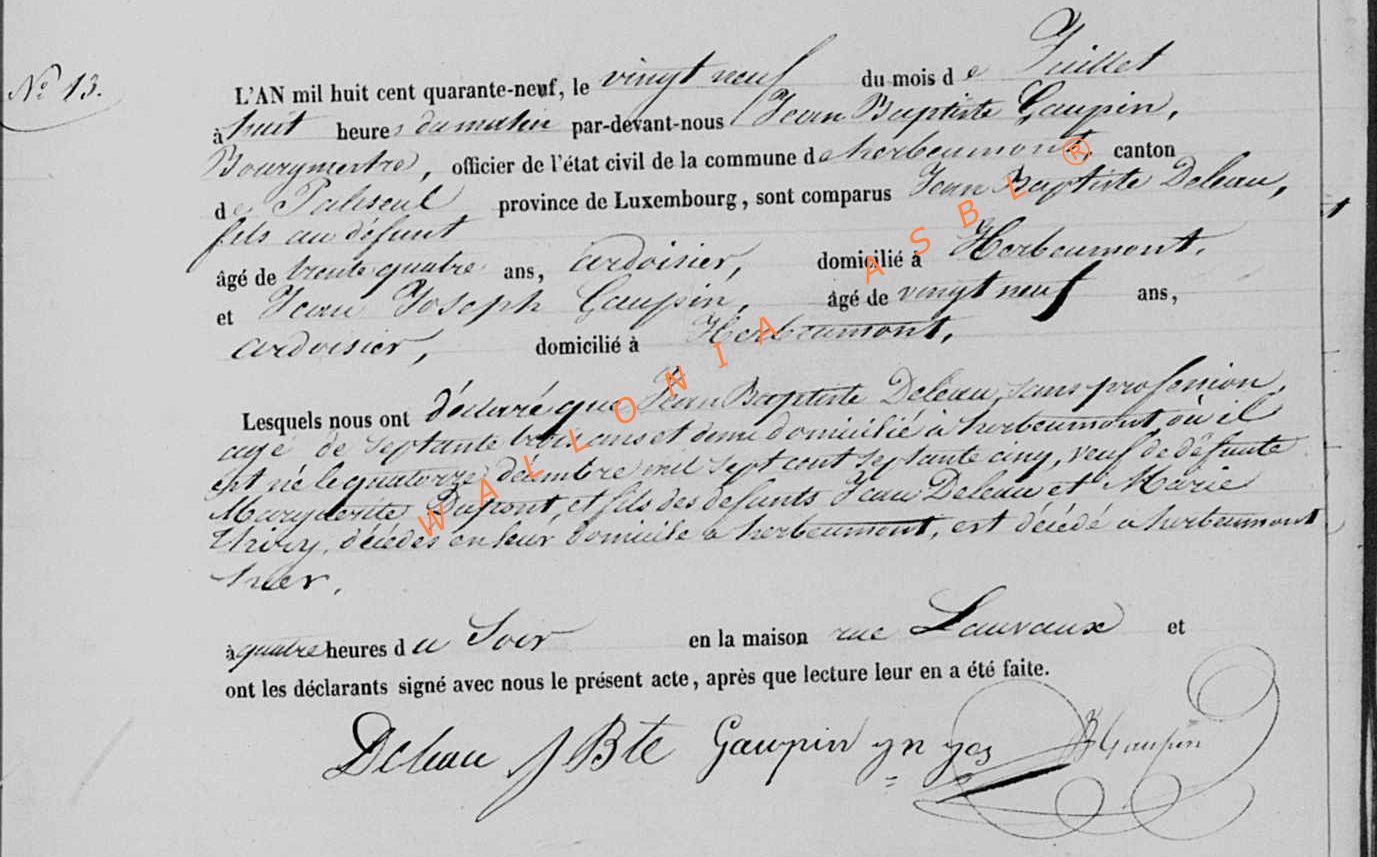 N° 13.
L'AN mil huit cent quarante-neuf, le vingt neuf du mois de Juillet
à huit heures du matin par-devant-nous Jean Baptiste Gaupin,
Bourgmestre, officier de l'état civil de la commune de herbeumont, canton
de Paliseul province de Luxembourg, sont comparus Jean Baptiste Deleau,
fils au défunt
âgé de trente quatre ans, ardoisier, domicilié à Herbeumont,
et Jean Joseph Gaupin, âgé de vingt neuf ans,
ardoisier, domicilié à Herbeumont,
Lesquels nous ont déclaré que Jean Baptiste Deleau, sans profession,
agé de septante trois ans et demi domicilié à herbeumont, où il
est né le quatorze décembre mil sept cent septante cinq, veuf de défunte
Marguerite Dupont, et fils des defunts Jean Deleau et Marie
décédés en leur domicile a herbeumont, est décédé a herbeumont
hier,
à quatre heures du Soir en la maison rue Lauvaux et
ont les déclarants signé avec nous le présent acte, après que lecture leur en a été faite.
Deleau J Bte Gaupin jn jos Gaupin
WALLONIA ASBL ®